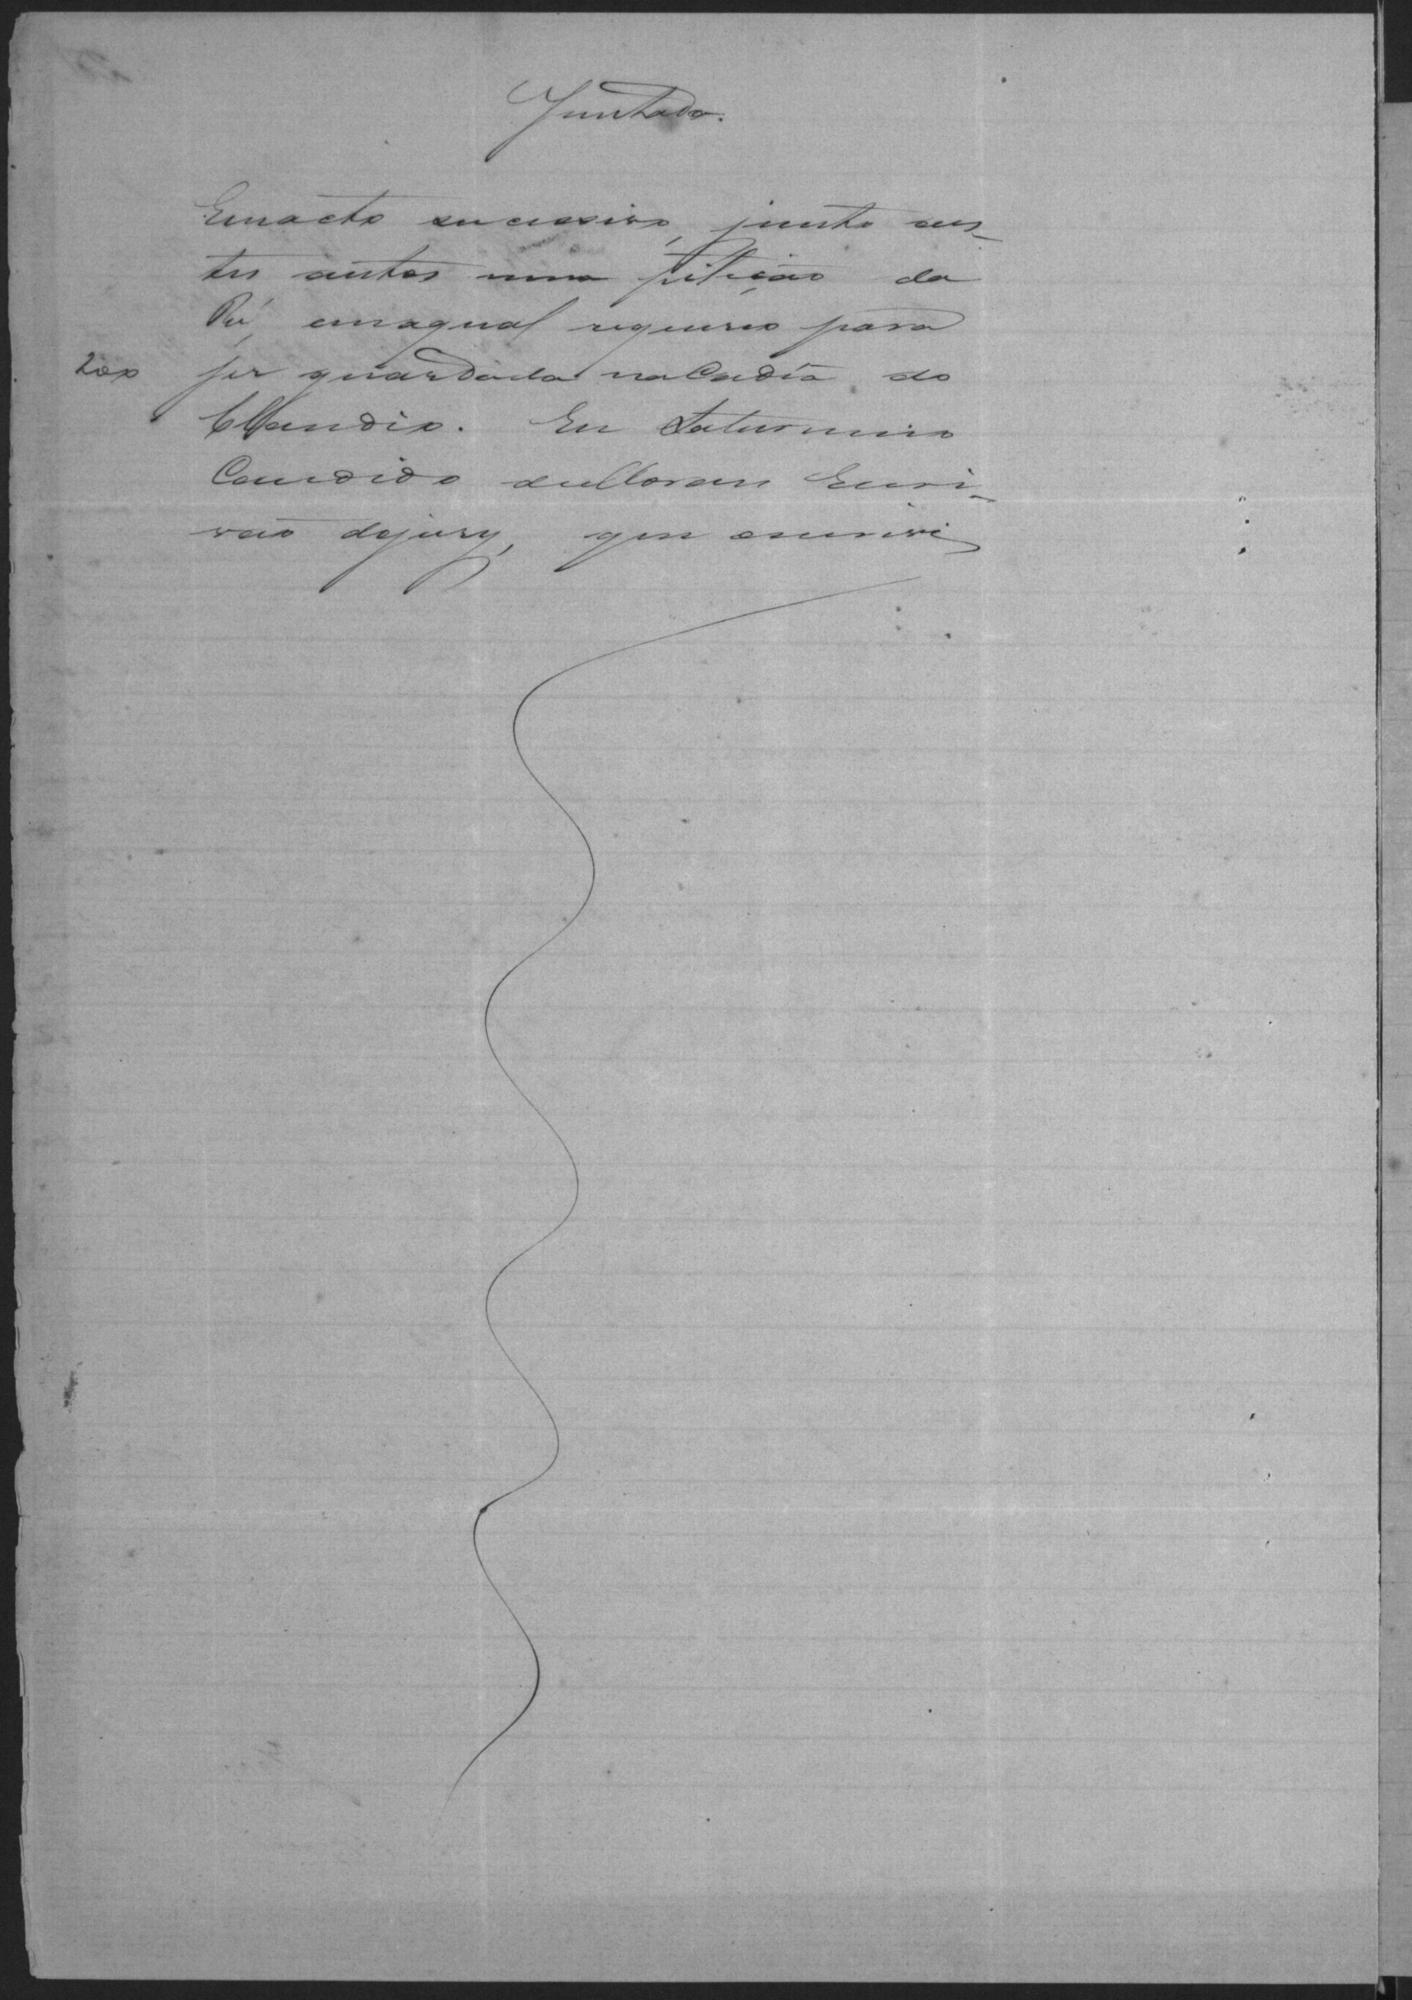 Juntada.
Em acto successivo, junto aes-
tes autos uma petição da
Ré, em a qual requereo para
200 ser guardada na Cadêa do
Claudio. Eu Saturnino
Candido de Moraes Escri-
vão do jury, que escrevi